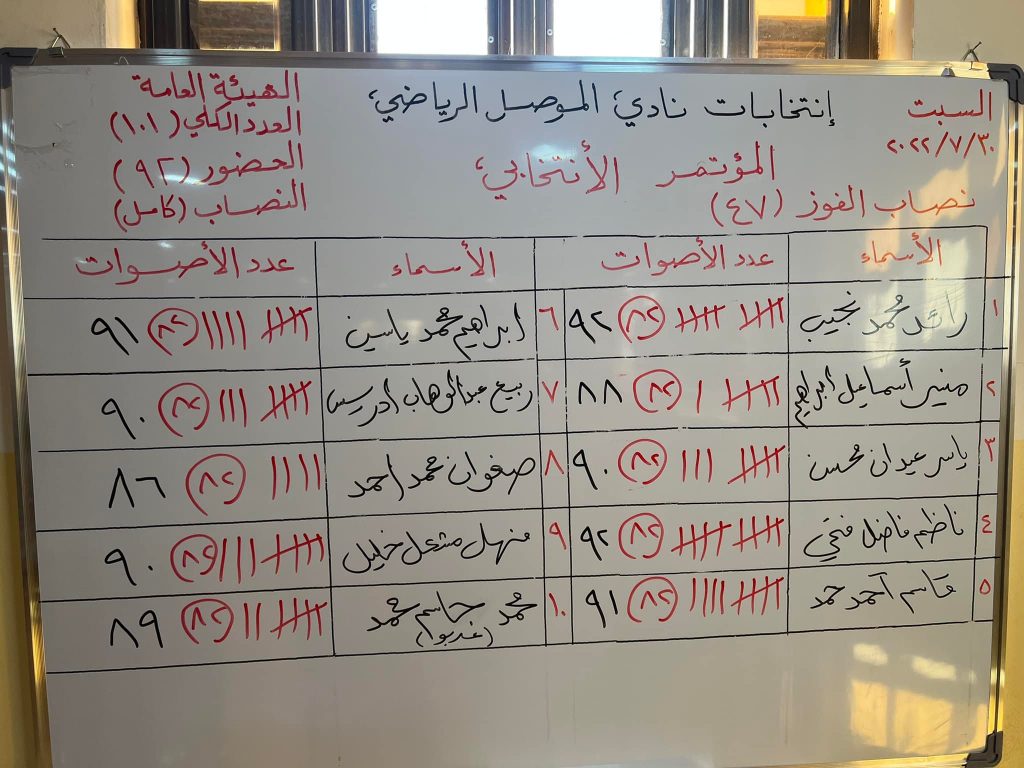 السبت
٢٠٢٢/٧/٣٠
إنتخابات نادي الموصل الرياضي
المؤتمر الأنتخابي
نصاب الفوز (٤٧)
الهيئة العامة
العدد الكلي (١٠١)
الحضور (٩٢)
النصاب (كامل)
الأسماء عدد الأصوات الأسماء عدد الأصوات
١ رائد محمد نجيب ٨٢ ٩٢
٢ منير أسماعيل ابراهيم ٨٢ ٨٨
٣ ياسر عيدان محسن ٨٢ ٩٠
٤ ناظم فاضل فتحي ٨٢ ٩٢
٥ قاسم احمد حمد ٨٢ ٩١
٦ ابراهيم محمد ياسين ٨٢ ٩١
٧ ربيع عبدالوهاب ادريس ٨٢ ٩٠
٨ صفوان محمد احمد ٨٢ ٨٦
٩ منهل مشعل خليل ٨٢ ٩٠
١٠ محمد جاسم محمد ٨٢ ٨٩